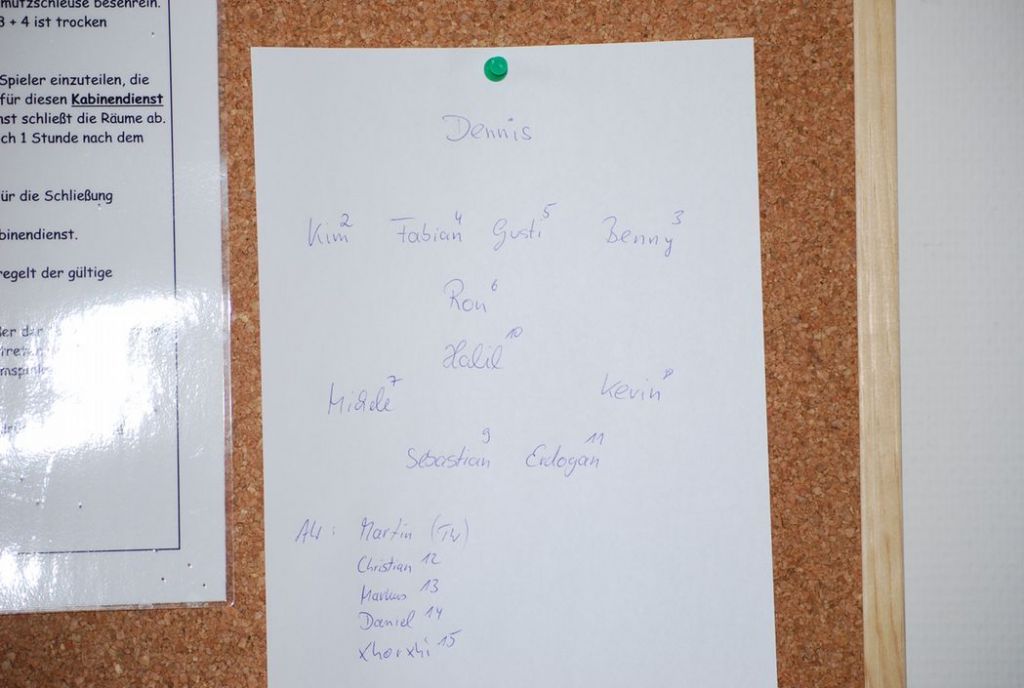 mutzschleuse besenrein.
3 + 4 ist trocken
Spieler einzuteilen, die
für diesen Kabinendienst
nst schließt die Räume ab.
ch 1 Stunde nach dem
ür die Schließung
binendienst.
regelt der gültige
Dennis
Kim 2 Fabian 4 Gusti 5 Benny 3
Ron 6
Halil 10
Michele 7 Kevin 8
Sebastian 9 Erdogan 11
AW: Martin (TW)
Christian 12
Markus 13
Daniel 14
Xhorxhi 15